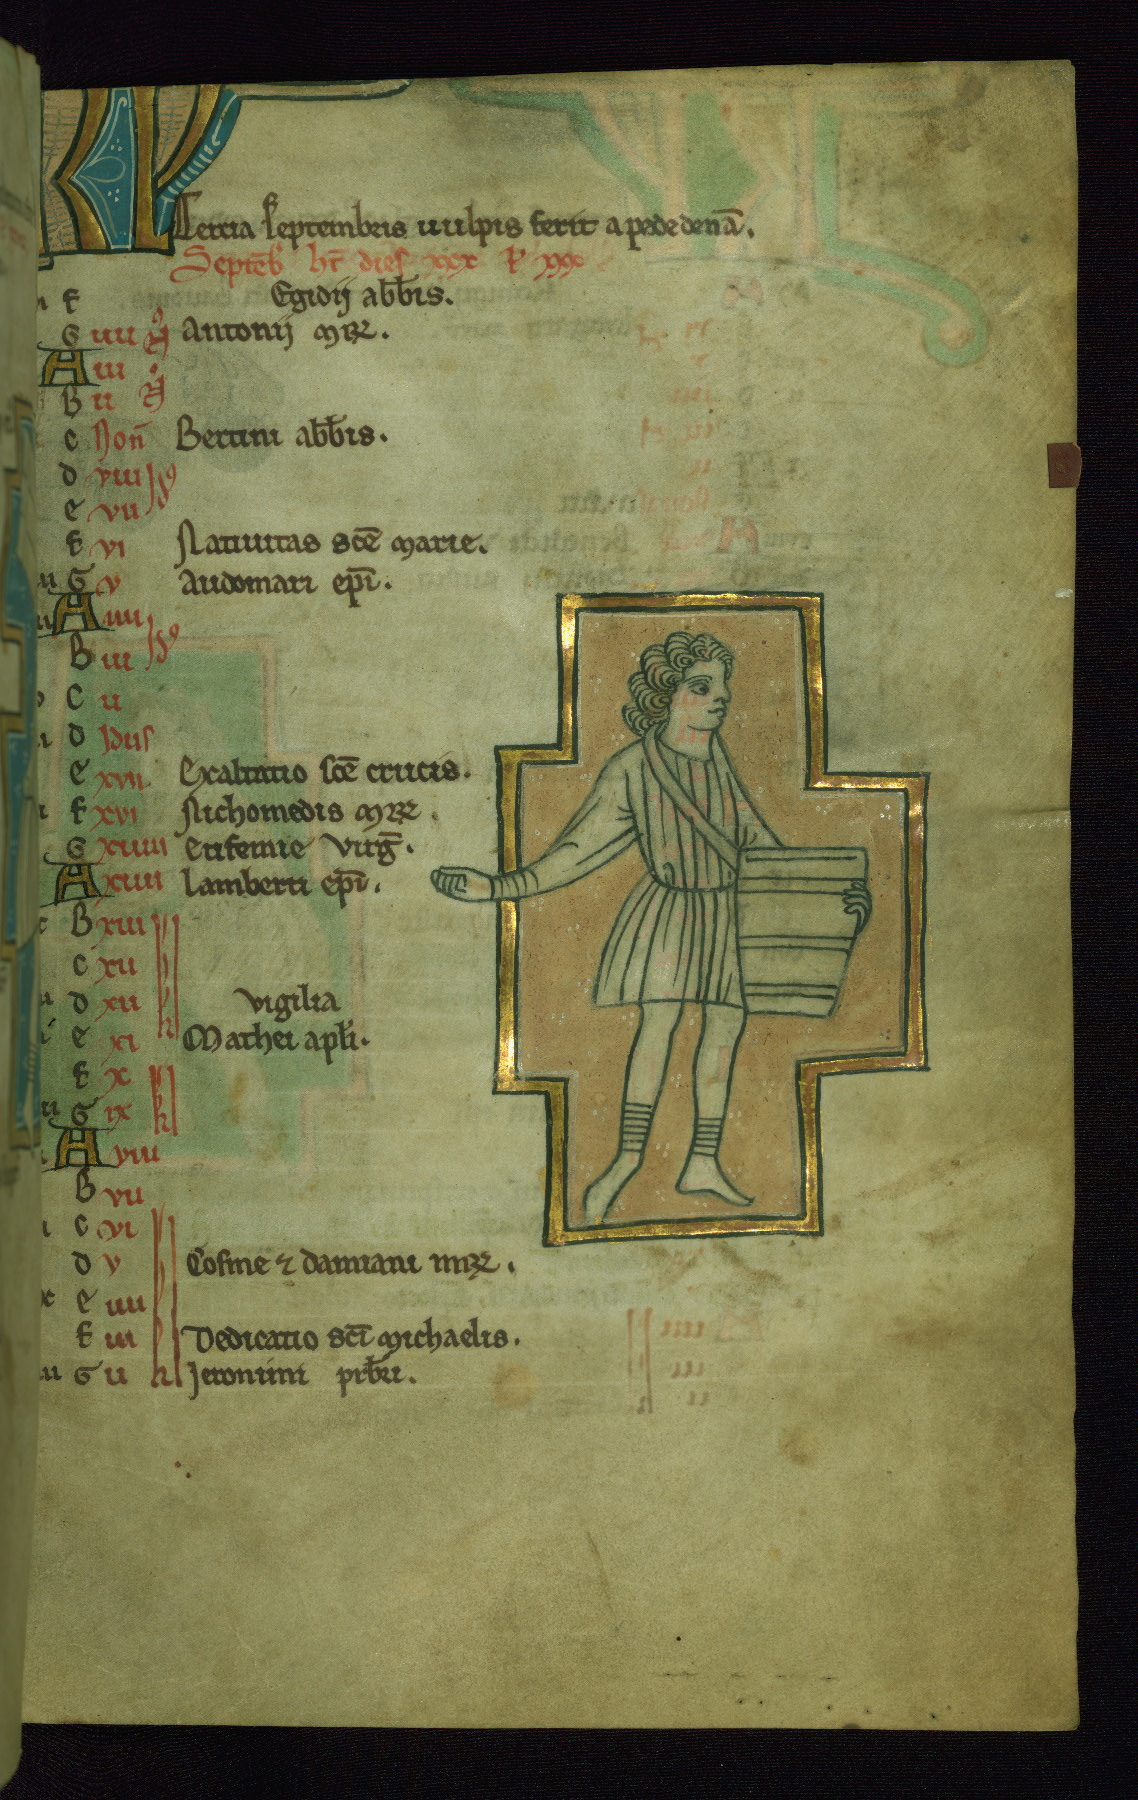 KL
Tercia septembris uulpis ferit a pede denā.
Septēb hт̄ dies xxx l xxx
F Egidij abb̄is.
G iiii N̊ Antonij mr̄.
A iii
B ii N̊
C Non̄ Bertini abb̄is.
D viii Id̊
E vii
F vi Natiuitas sc̄e marie.
G v Audomari ep̄i.
A iiii
B iii Id̊
C ii
D Idus
E xvii Exaltatio sc̄e crucis.
F xvi Nichomedis mr̄.
G xiiiii Eufemie virḡ.
A xiiii Lamberti ep̄i.
B xiii
C xii
D xii vigilia
E xi Mathei apl̄i.
F x
G ix kl
A viii
B vii
C vi
D v Cosme ⁊ damiani mr̄.
E iiii
F iii Dedicatio sc̄i michaelis.
G ii kl Jeronimi pr̄bri.